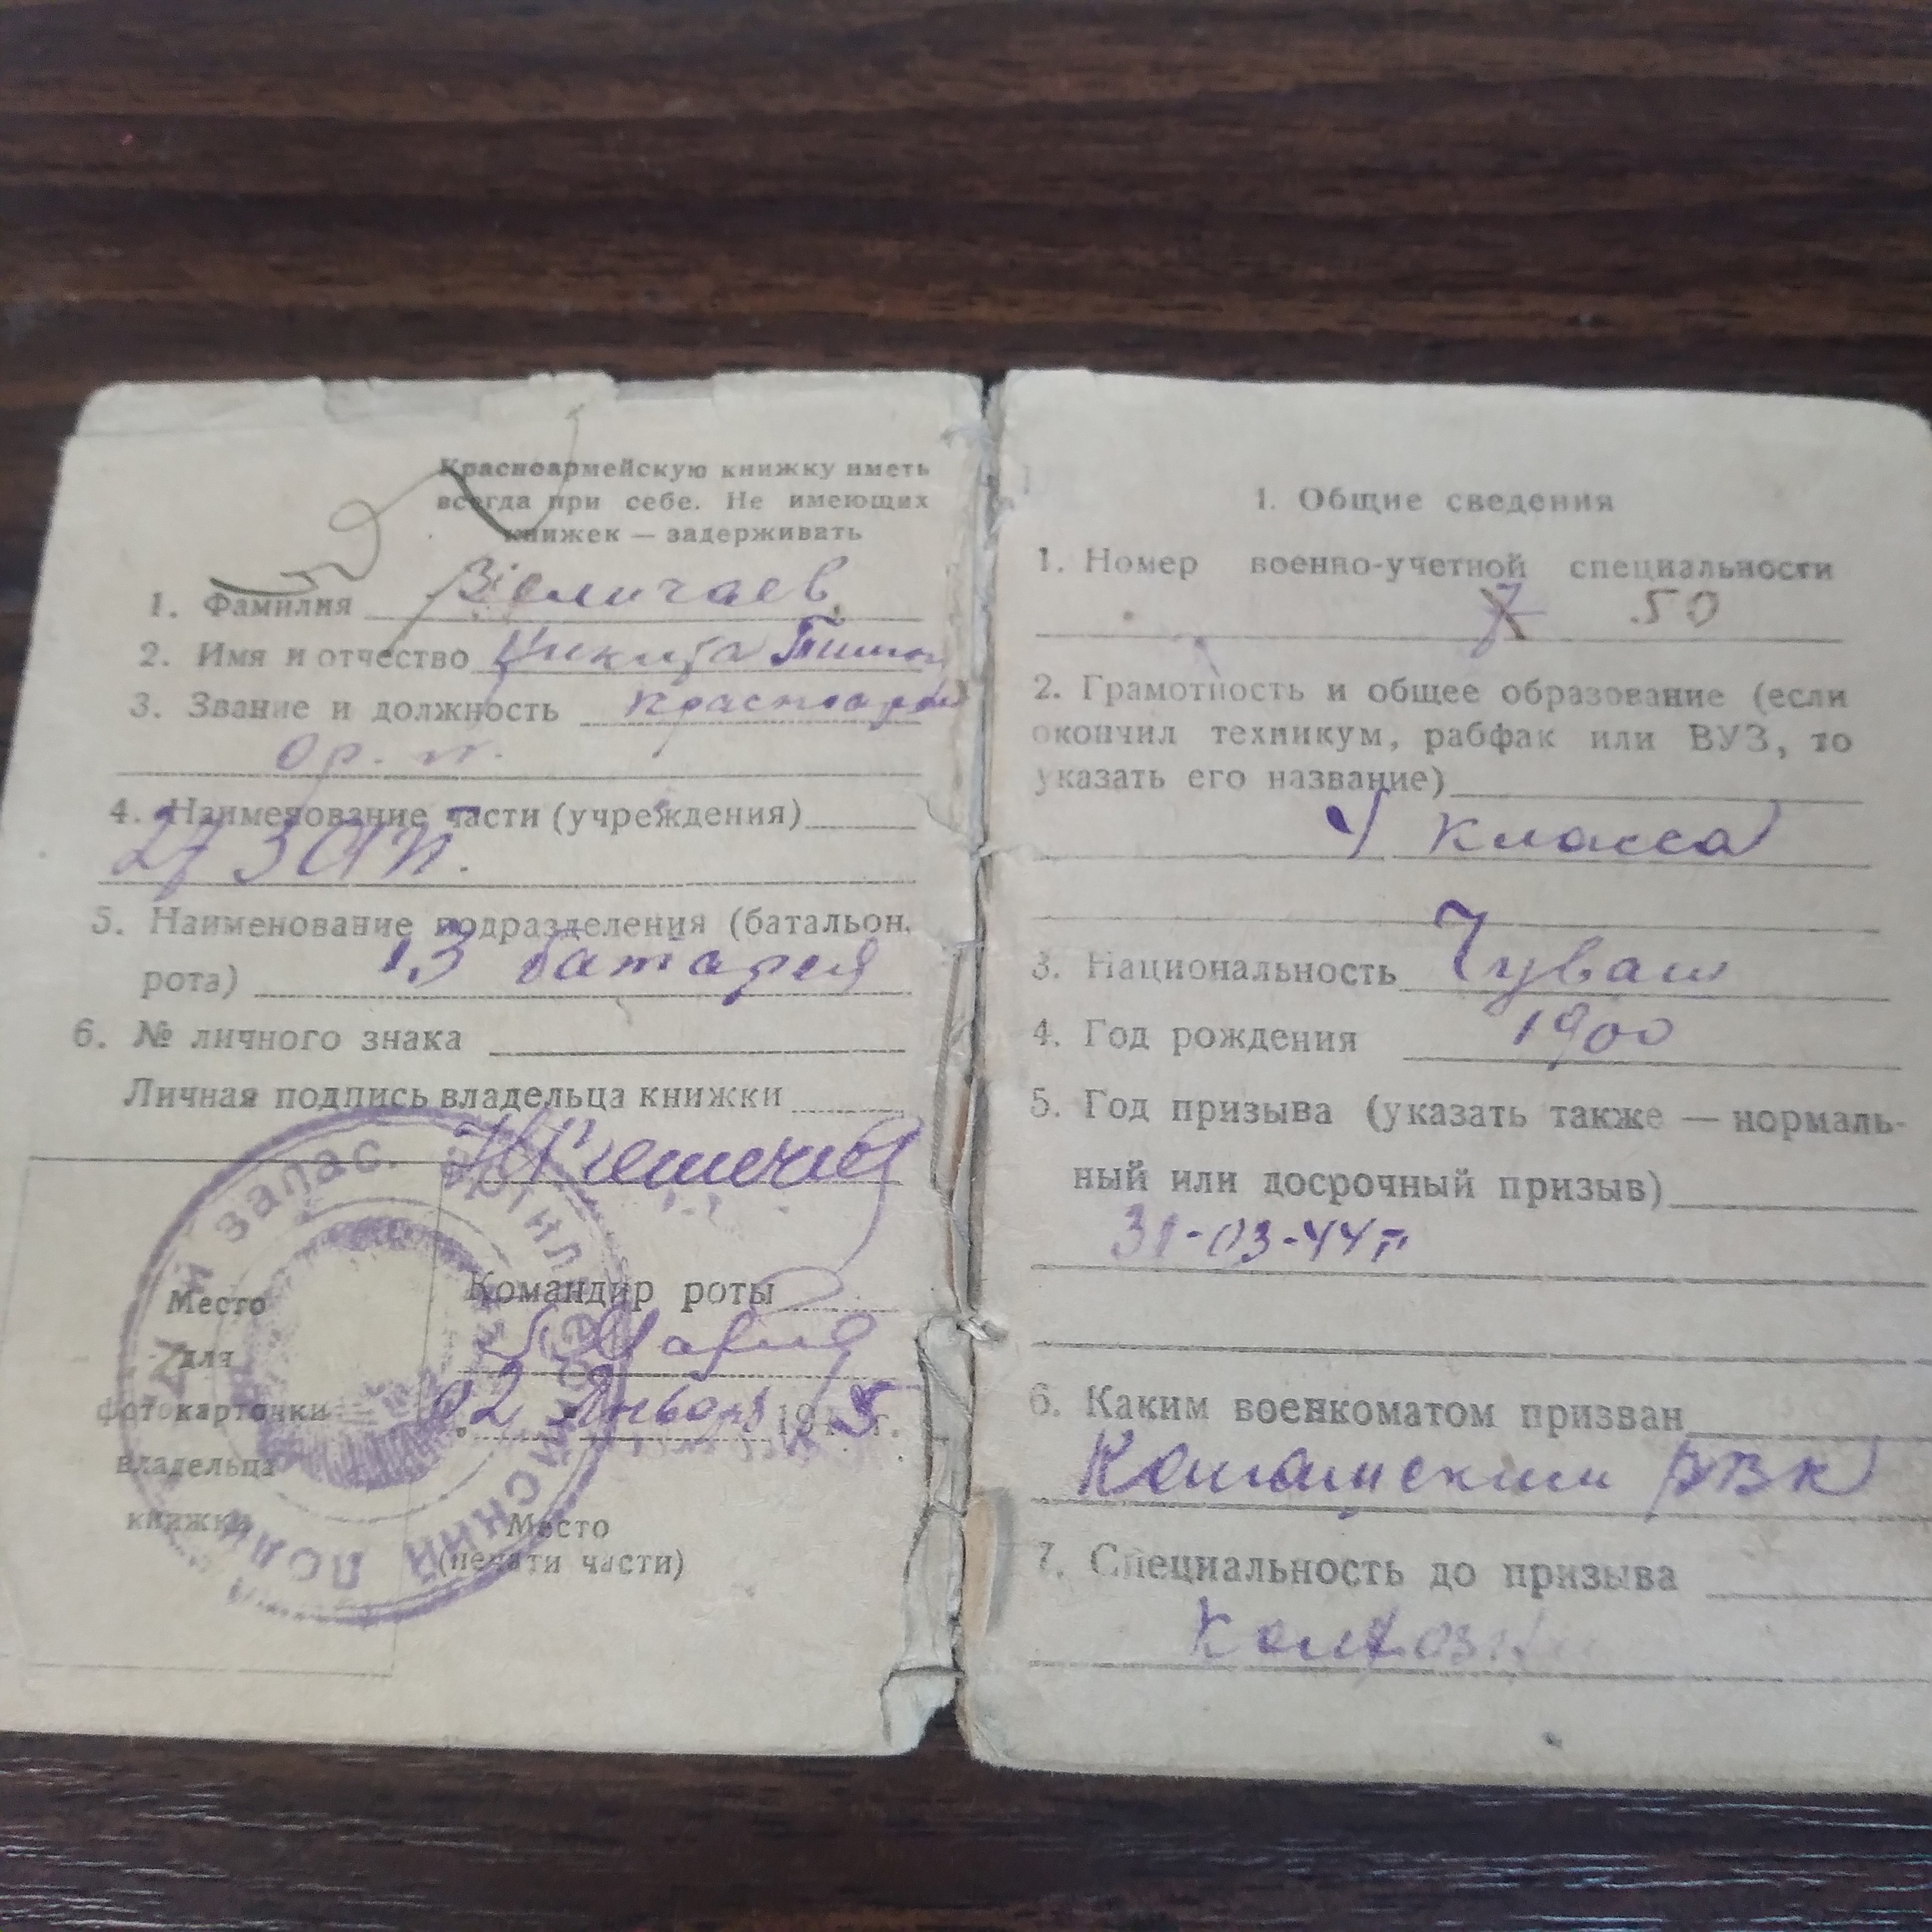 Красноармейскую книжку иметь
всегда при себе. Не имеющих
книжек — задерживать
1. Фамилия
2. Имя и отчество Никита Тимоф
3. Звание и должность красноарм
ор. н.
4. Наименование части (учреждения)
27 ЗАП.
5. Наименование подразделения (батальон,
рота) 13 батарея
6. № личного знака
Личная подпись владельца книжки
Место
для
фотокарточки
владельца
книжки
Командир роты
02 Января 1945 г.
Место
(печати части)
запас. Артил
ский полк
1. Общие сведения
1. Номер военно-учетной специальности
50
2. Грамотность и общее образование (если
окончил техникум, рабфак или ВУЗ, то
указать его название)
4 класса
3. Национальность Чуваш
4. Год рождения 1900
5. Год призыва (указать также — нормаль-
ный или досрочный призыв)
31-03-44 г
6. Каким военкоматом призван
РВК
7. Специальность до призыва